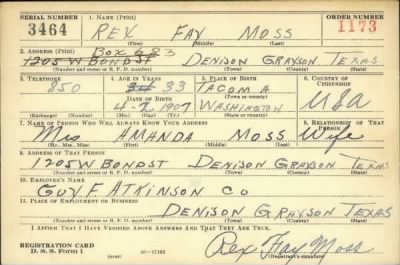 SERIAL NUMBER 1. NAME (Print) ORDER NUMBER
3464 REX FAY MOSS 1173
(First) (Middle) (Last)
2. ADDRESS (Print) BOX 683
1205 W BOND ST DENISON GRAYSON TEXAS
(Number and street or R. F. D. number) (Town) (County) (State)
3. TELEPHONE 4. AGE IN YEARS 5. PLACE OF BIRTH 6. COUNTRY OF CITIZENSHIP
850 34 33 TACOMA
DATE OF BIRTH USA
4-7 1907 WASHINGTON
(Exchange) (Number) (Mo.) (Day) (Yr.) (State or country)
7. NAME OF PERSON WHO WILL ALWAYS KNOW YOUR ADDRESS 8. RELATIONSHIP OF THAT PERSON
Mrs AMANDA MOSS Wife
(Mr., Mrs., Miss) (First) (Middle) (Last)
9. ADDRESS OF THAT PERSON
1205 W BOND ST DENISON GRAYSON TEXAS
(Number and street or R. F. D. number) (Town) (County) (State)
10. EMPLOYER'S NAME
GUY F ATKINSON CO
11. PLACE OF EMPLOYMENT OR BUSINESS
DENISON GRAYSON TEXAS
(Number and street or R. F. D. number) (Town) (County) (State)
I AFFIRM THAT I HAVE VERIFIED ABOVE ANSWERS AND THAT THEY ARE TRUE.
REGISTRATION CARD Rex Fay Moss
D. S. S. Form 1 (over) (Registrant's signature)